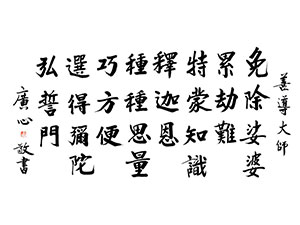 善導大師
免除娑婆
累劫難
特蒙知識
釋迦恩
種種思量
巧方便
選得彌陀
弘誓門
廣心敬書